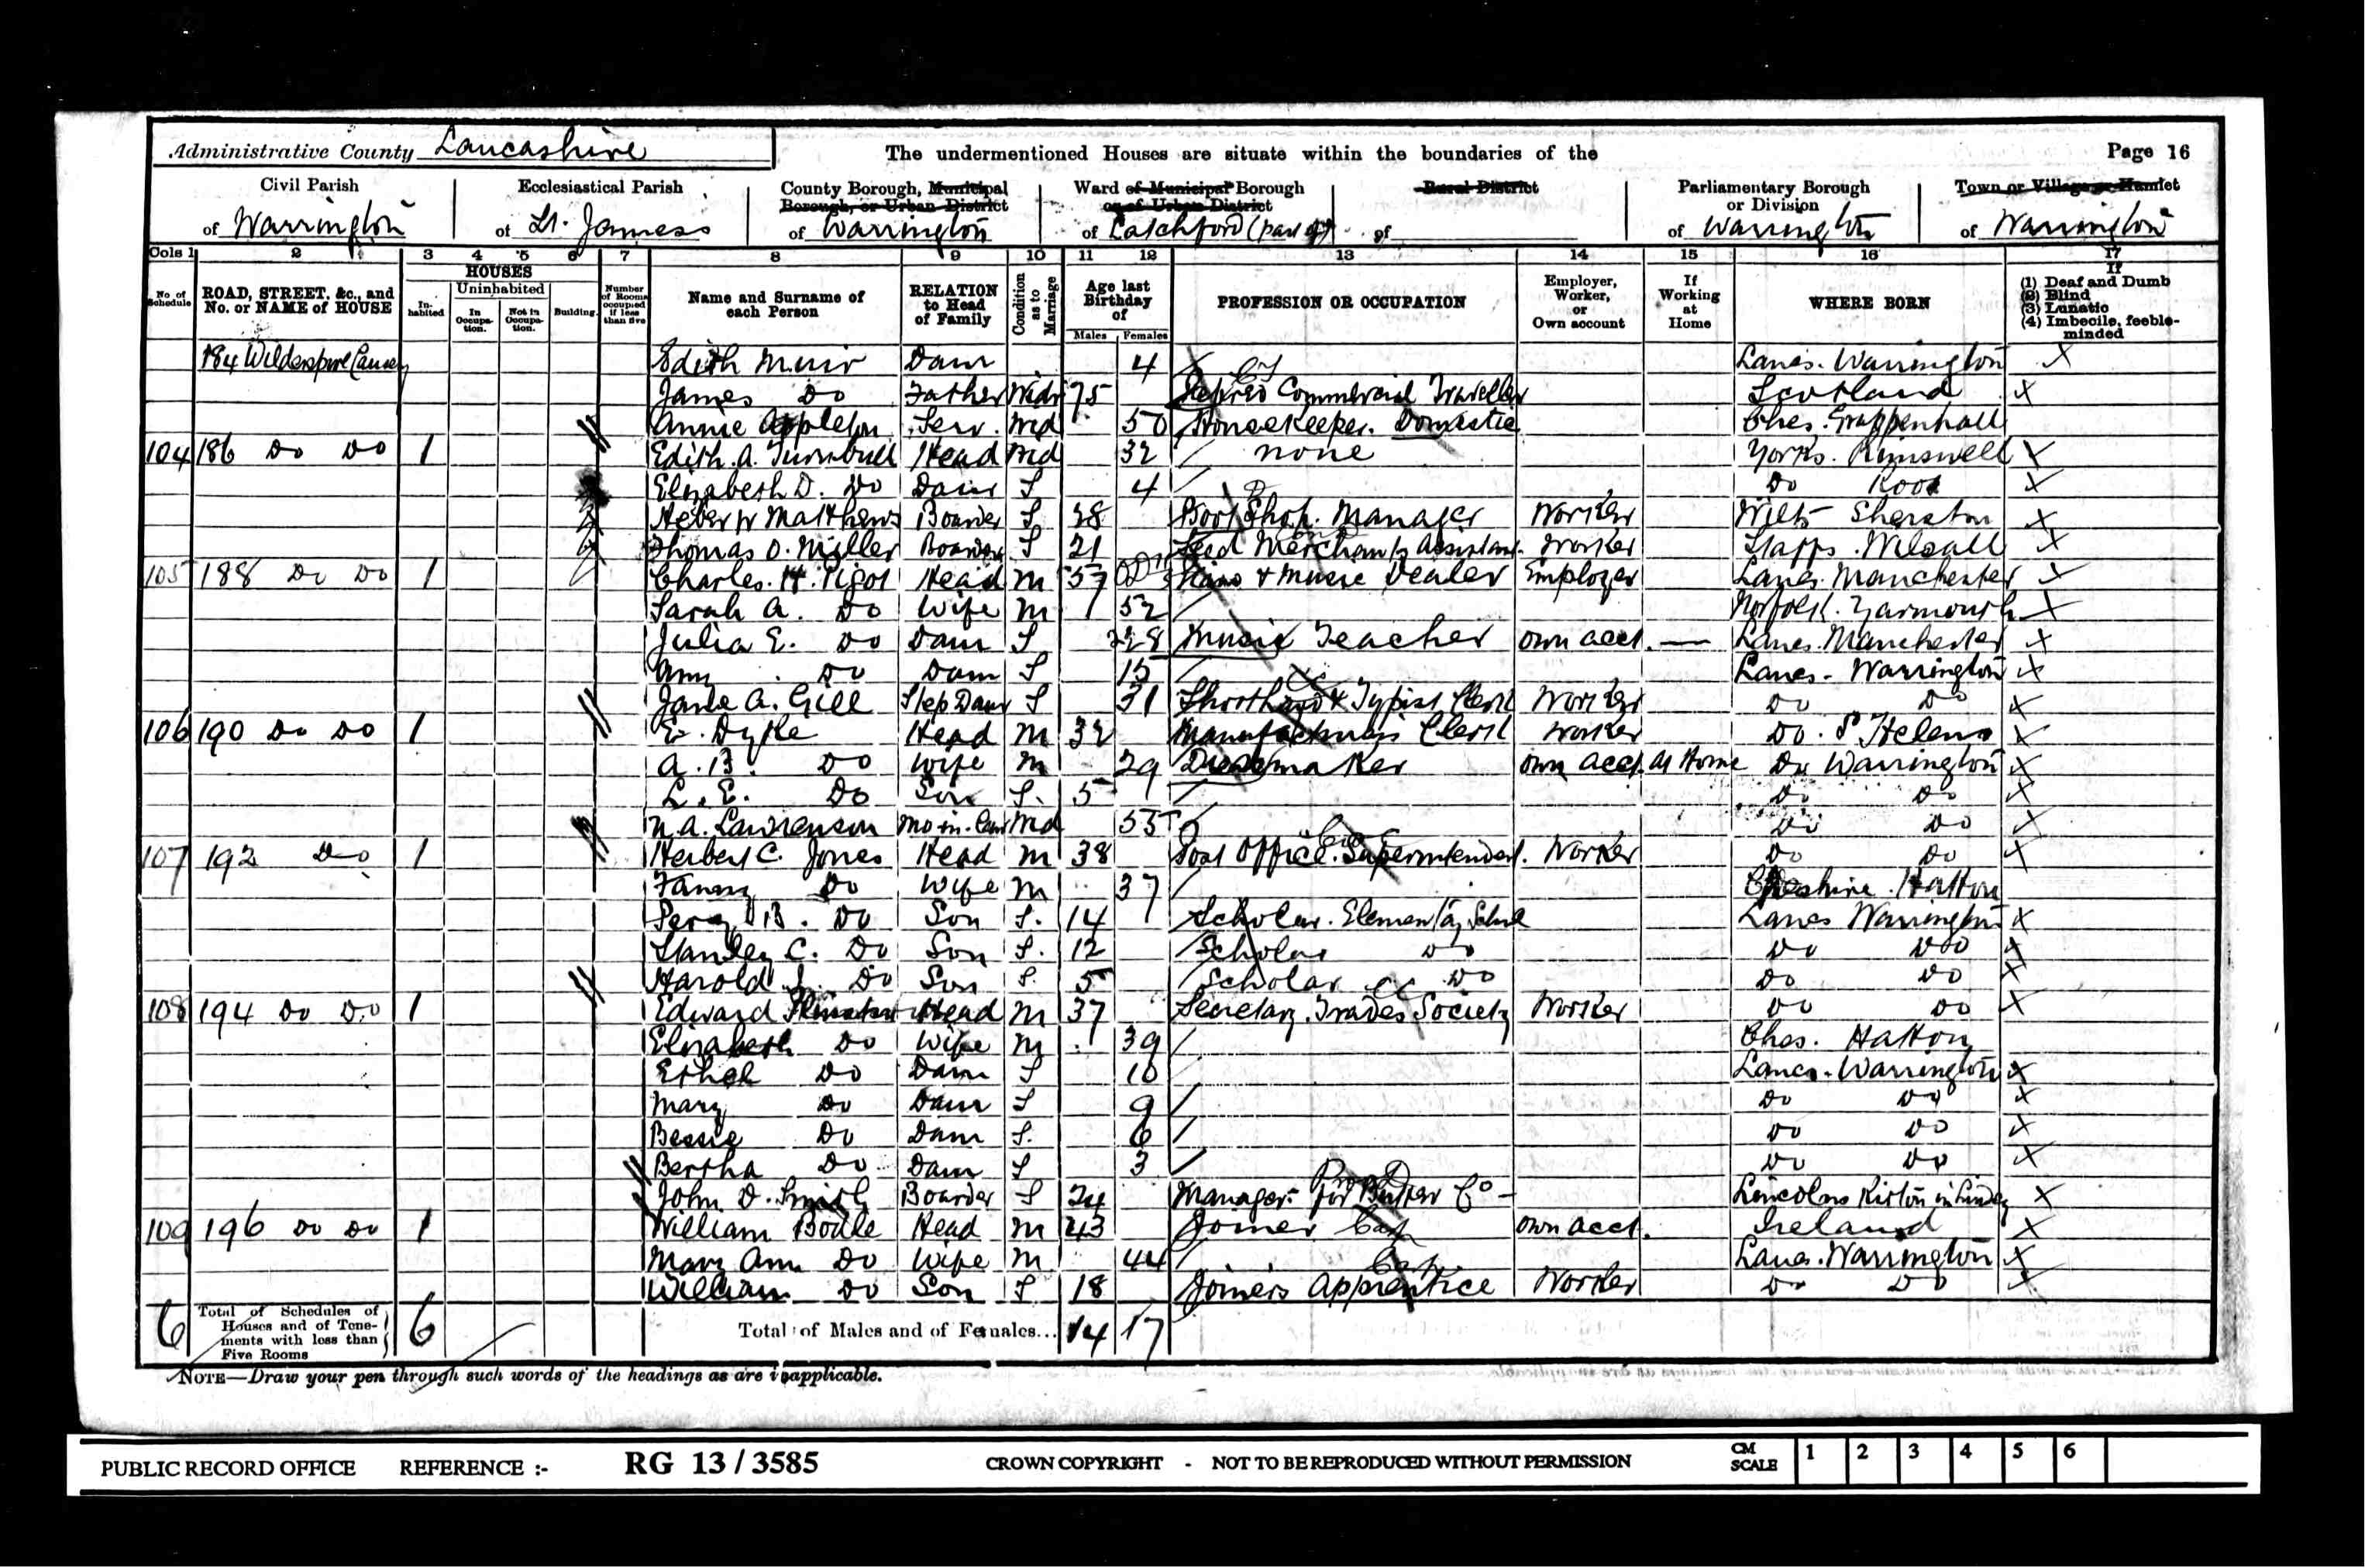 Administrative County Lancashire
The undermentioned Houses are situate within the boundaries of the
Page 16
Civil Parish of Warrington
Ecclesiastical Parish of St. James's
County Borough, Municipal Borough, or Urban District of Warrington
Ward of Municipal Borough or of Urban District of Latchford (part of)
Rural District of
Parliamentary Borough or Division of Warrington
Town or Village or Hamlet of Warrington
Cols 1 2 3 4 5 6 7 8 9 10 11 12 13 14 15 16 17
No. of Schedule
ROAD, STREET, &c., and No. or NAME of HOUSE
HOUSES
Inhabited
Uninhabited
In Occupation.
Not in Occupation.
Building.
Number of Rooms occupied if less than five
Name and Surname of each Person
RELATION to Head of Family
Condition as to Marriage
Age last Birthday of
Males Females
PROFESSION OR OCCUPATION
Employer, Worker, or Own account
If Working at Home
WHERE BORN
If (1) Deaf and Dumb (2) Blind (3) Lunatic (4) Imbecile, feeble-minded
184 Edith Muir Daur 4 Lancs. Warrington X
James Do Father Widr 75 Retired Commercial Traveller Scotland X
Annie Appleton Serv. Wd 50 Housekeeper. Domestic Ches. Grappenhall
104 186 Do Do 1 Edith. A. Turnbull Head Wd 32 none Yorks. Rimswell X
Elizabeth D. Do Daur S 4 Do Roos X
Heber W Matthews Boarder S 28 Boot Shop. Manager Worker Wilts Sherston X
Thomas O. Miller Boarder S 21 Seed Merchants Assistant. Worker Staffs. X
105 188 Do Do 1 Charles. H. Pigot Head M 57 Piano & Music Dealer Employer Lancs. Manchester X
Sarah A. Do Wife M 52 Norfolk. Yarmouth X
Julia E. Do Daur S 28 Music Teacher Own acct. — Lancs. Manchester X
Amy Do Daur S 15 Lancs. Warrington X
Jane A. Gill Step Daur S 31 Shorthand & Typist Clerk Worker Do Do X
106 190 Do Do 1 E. Dyke Head M 32 Manufacturers Clerk Worker Do. St Helens X
A. B. Do Wife M 29 Dressmaker Own acct. At Home Do Warrington X
L. E. Do Son S. 5 Do Do X
N. A. Lawrenson Mo-in-law Wd 55 Do Do X
107 192 Do 1 Herbert C. Jones Head M 38 Post Office. Superintendent. Worker Do Do X
Fanny Do Wife M 37 Cheshire. Hatton
Percy B. Do Son S. 14 Scholar. Elementary School Lancs Warrington X
Stanley C. Do Son S. 12 Scholar Do Do Do X
Harold Do Son S. 5 Scholar Do Do Do X
108 194 Do Do 1 Edward Head M 37 Secretary. Trades Society Worker Do Do X
Elizabeth Do Wife M 39 Ches. Hatton
Ethel Do Daur S 10 Lancs. Warrington X
Mary Do Daur S 9 Do Do X
Bessie Do Daur S. 6 Do Do X
Bertha Do Daur S 3 Do Do X
John D. Smith Boarder S 24 Manager- for Butter Co- Lincolns Kirton in Lindsey X
109 196 Do Do 1 William Boale Head M 43 Joiner Own acct. Ireland X
Mary Ann Do Wife M 44 Lancs. Warrington X
William Do Son S 18 Joiners Apprentice Worker Do Do X
6 Total of Schedules of Houses and of Tenements with less than Five Rooms 6 Total of Males and of Females... 14 17
NOTE—Draw your pen through such words of the headings as are inapplicable.
PUBLIC RECORD OFFICE REFERENCE :- RG 13 / 3585 CROWN COPYRIGHT - NOT TO BE REPRODUCED WITHOUT PERMISSION CM SCALE 1 2 3 4 5 6